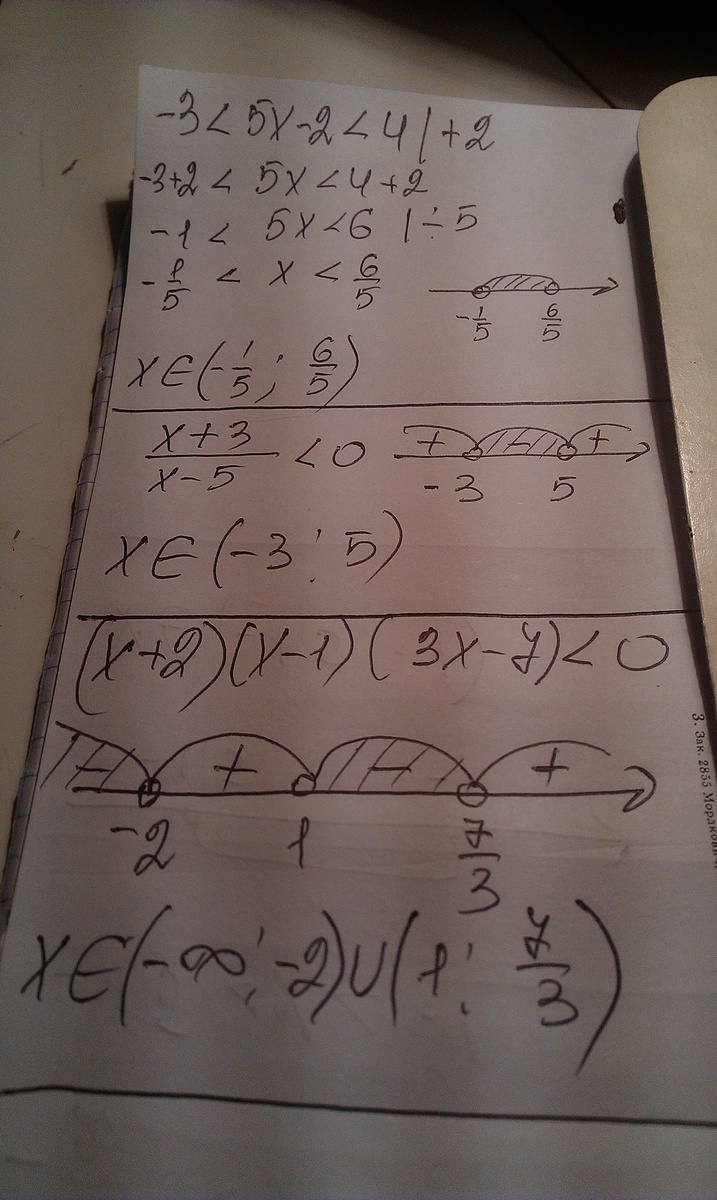 -3 < 5x - 2 < 4 | +2
-3+2 < 5x < 4+2
-1 < 5x < 6 | ÷ 5
-1/5 < x < 6/5
-1/5 6/5
x∈(-1/5; 6/5)
(x+3)/(x-5) < 0
+ - +
-3 5
x∈(-3; 5)
(x+2)(x-1)(3x-7) < 0
- + - +
-2 1 7/3
x∈(-∞; -2)∪(1; 7/3)
3. Зак. 2855